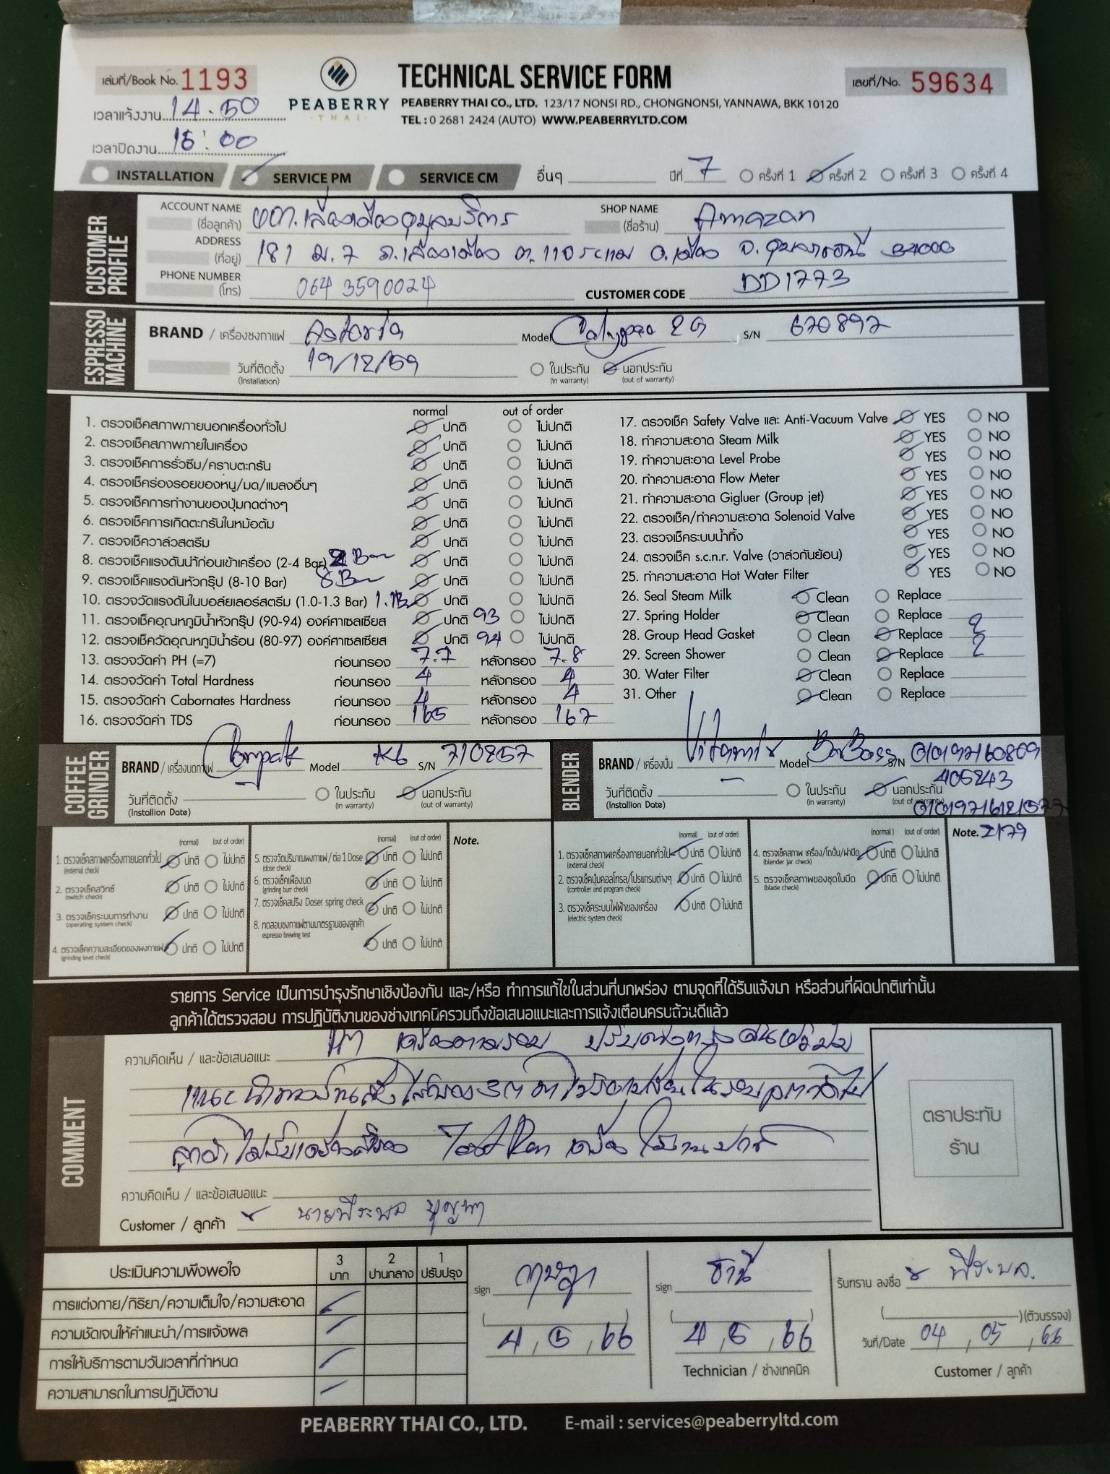 เล่มที่/Book No. 1193
PEABERRY
THAI
TECHNICAL SERVICE FORM
PEABERRY THAI CO., LTD. 123/17 NONSI RD., CHONGNONSI, YANNAWA, BKK 10120
TEL : 0 2681 2424 (AUTO) WWW.PEABERRYLTD.COM
เลขที่/No. 59634
เวลาแจ้งงาน 14.50
เวลาปิดงาน 16:00
INSTALLATION SERVICE PM SERVICE CM อื่นๆ ปีที่ 7 ครั้งที่ 1 ครั้งที่ 2 ครั้งที่ 3 ครั้งที่ 4
CUSTOMER PROFILE
ACCOUNT NAME (ชื่อลูกค้า)
SHOP NAME (ชื่อร้าน) Amazon
ADDRESS (ที่อยู่) 181 ม.7
PHONE NUMBER (โทร) 064 3590024
CUSTOMER CODE DD1773
ESPRESSO MACHINE
BRAND / เครื่องชงกาแฟ Astoria Model Calypso 2G S/N 670897
วันที่ติดตั้ง (Installation) 19/12/59 ในประกัน (in warranty) นอกประกัน (out of warranty)
normal out of order
1. ตรวจเช็คสภาพภายนอกเครื่องทั่วไป ปกติ ไม่ปกติ
2. ตรวจเช็คสภาพภายในเครื่อง ปกติ ไม่ปกติ
3. ตรวจเช็คการรั่วซึม/คราบตะกรัน ปกติ ไม่ปกติ
4. ตรวจเช็คร่องรอยของหนู/มด/แมลงอื่นๆ ปกติ ไม่ปกติ
5. ตรวจเช็คการทำงานของปุ่มกดต่างๆ ปกติ ไม่ปกติ
6. ตรวจเช็คการเกิดตะกรันในหม้อต้ม ปกติ ไม่ปกติ
7. ตรวจเช็ควาล์วสตรีม ปกติ ไม่ปกติ
8. ตรวจเช็คแรงดันน้ำก่อนเข้าเครื่อง (2-4 Bar) 2 Bar ปกติ ไม่ปกติ
9. ตรวจเช็คแรงดันหัวกรุ๊ป (8-10 Bar) 8 Bar ปกติ ไม่ปกติ
10. ตรวจวัดแรงดันในบอยเลอร์สตรีม (1.0-1.3 Bar) 1.1B ปกติ ไม่ปกติ
11. ตรวจเช็คอุณหภูมิน้ำหัวกรุ๊ป (90-94) องศาเซลเซียส ปกติ 93 ไม่ปกติ
12. ตรวจเช็ควัดอุณหภูมิน้ำร้อน (80-97) องศาเซลเซียส ปกติ 94 ไม่ปกติ
13. ตรวจวัดค่า PH (=7) ก่อนกรอง 7.7 หลังกรอง 7.8
14. ตรวจวัดค่า Total Hardness ก่อนกรอง 4 หลังกรอง 4
15. ตรวจวัดค่า Cabornates Hardness ก่อนกรอง 4 หลังกรอง 4
16. ตรวจวัดค่า TDS ก่อนกรอง 165 หลังกรอง 167
17. ตรวจเช็ค Safety Valve และ Anti-Vacuum Valve YES NO
18. ทำความสะอาด Steam Milk YES NO
19. ทำความสะอาด Level Probe YES NO
20. ทำความสะอาด Flow Meter YES NO
21. ทำความสะอาด Gigluer (Group jet) YES NO
22. ตรวจเช็ค/ทำความสะอาด Solenoid Valve YES NO
23. ตรวจเช็คระบบน้ำทิ้ง YES NO
24. ตรวจเช็ค s.c.n.r. Valve (วาล์วกันย้อน) YES NO
25. ทำความสะอาด Hot Water Filter YES NO
26. Seal Steam Milk Clean Replace
27. Spring Holder Clean Replace
28. Group Head Gasket Clean Replace 2
29. Screen Shower Clean Replace 2
30. Water Filter Clean Replace
31. Other Clean Replace
COFFEE GRINDER
BRAND / เครื่องบดกาแฟ Compak Model K6 S/N 710857
วันที่ติดตั้ง (Installion Date) ในประกัน (in warranty) นอกประกัน (out of warranty)
BLENDER
BRAND / เครื่องปั่น Vitamix Model BarBoss S/N
วันที่ติดตั้ง (Installation Date) - ในประกัน (in warranty) นอกประกัน (out of warranty) 405243
(normal) (out of order)
1. ตรวจเช็คสภาพเครื่องภายนอกทั่วไป (external check) ปกติ ไม่ปกติ
2. ตรวจเช็คสวิทซ์ (switch check) ปกติ ไม่ปกติ
3. ตรวจเช็คระบบการทำงาน (operating system check) ปกติ ไม่ปกติ
4. ตรวจเช็คความละเอียดของผงกาแฟ (grinding level check) ปกติ ไม่ปกติ
5. ตรวจวัดปริมาณผงกาแฟ/ต่อ 1 Dose (dose check) ปกติ ไม่ปกติ
6. ตรวจเช็คเฟืองบด (grinding burr check) ปกติ ไม่ปกติ
7. ตรวจเช็คสปริง Doser spring check ปกติ ไม่ปกติ
8. ทดสอบชงกาแฟตามมาตรฐานของลูกค้า espresso brewing test ปกติ ไม่ปกติ
Note.
1. ตรวจเช็คสภาพเครื่องภายนอกทั่วไป (external check) ปกติ ไม่ปกติ
2. ตรวจเช็คคอนโทรล/โปรแกรมต่างๆ (controller and program check) ปกติ ไม่ปกติ
3. ตรวจเช็คระบบไฟฟ้าของเครื่อง (electric system check) ปกติ ไม่ปกติ
4. ตรวจเช็คสภาพ เครื่อง/โถปั่น/ฝาปิด (blender jar check) ปกติ ไม่ปกติ
5. ตรวจเช็คสภาพของชุดใบมีด (blade check) ปกติ ไม่ปกติ
Note. 2179
รายการ Service เป็นการบำรุงรักษาเชิงป้องกัน และ/หรือ ทำการแก้ไขในส่วนที่บกพร่อง ตามจุดที่ได้รับแจ้งมา หรือส่วนที่ผิดปกติเท่านั้น
ลูกค้าได้ตรวจสอบ การปฏิบัติงานของช่างเทคนิครวมถึงข้อเสนอแนะและการแจ้งเตือนครบถ้วนดีแล้ว
COMMENT
ความคิดเห็น / และข้อเสนอแนะ
ความคิดเห็น / และข้อเสนอแนะ
Customer / ลูกค้า
ตราประทับ
ร้าน
ประเมินความพึงพอใจ 3 มาก 2 ปานกลาง 1 ปรับปรุง
การแต่งกาย/กิริยา/ความเต็มใจ/ความสะอาด
ความชัดเจนให้คำแนะนำ/การแจ้งผล
การให้บริการตามวันเวลาที่กำหนด
ความสามารถในการปฏิบัติงาน
sign
4, 5, 66
sign ธานี
4, 5, 66
Technician / ช่างเทคนิค
รับทราบ ลงชื่อ พีระพล
(ตัวบรรจง)
วันที่/Date 04, 05, 66
Customer / ลูกค้า
PEABERRY THAI CO., LTD. E-mail : services@peaberryltd.com